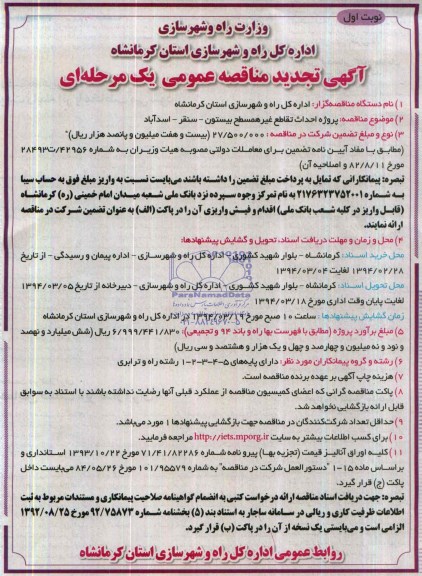 نوبت اول
وزارت راه وشهرسازی
اداره کل راه و شهرسازی استان کرمانشاه
آگهی تجدید مناقصه عمومی یک مرحله‌ای
۱) نام دستگاه مناقصه‌گزار: اداره کل راه و شهرسازی استان کرمانشاه
۲) موضوع مناقصه: پروژه احداث تقاطع غیرهمسطح بیستون - سنقر - اسدآباد
۳) نوع و مبلغ تضمین شرکت در مناقصه: ۲۷/۵۰۰/۰۰۰ (بیست و هفت میلیون و پانصد هزار ریال)"
(مطابق با مفاد آیین نامه تضمین برای معاملات دولتی مصوبه هیات وزیران به شماره ۴۲۹۵۶/ت۲۸۴۹۳
مورخ ۸۲/۸/۱۱ و اصلاحیه آن)
تبصره: پیمانکارانی که تمایل به پرداخت مبلغ تضمین را داشته باشند می‌بایست نسبت به واریز مبلغ فوق به حساب سیبا
به شماره ۲۱۷۶۳۲۳۷۵۲۰۰۱ به نام تمرکز وجوه سپرده نزد بانک ملی شعبه میدان امام خمینی (ره) کرمانشاه
(قابل واریز در کلیه شعب بانک ملی) اقدام و فیش واریزی آن را در پاکت (الف) به عنوان تضمین شرکت در مناقصه
ارائه نمایند.
۴) محل و زمان و مهلت دریافت اسناد، تحویل و گشایش پیشنهادها:
محل خرید اسناد: کرمانشاه - بلوار شهید کشوری - اداره کل راه و شهرسازی - اداره پیمان و رسیدگی - از تاریخ
۱۳۹۴/۰۲/۲۸ لغایت ۱۳۹۴/۰۳/۰۴
محل تحویل اسناد: کرمانشاه - بلوار شهید کشوری - اداره کل راه و شهرسازی - دبیرخانه از تاریخ ۱۳۹۴/۰۳/۰۵
لغایت پایان وقت اداری مورخ ۱۳۹۴/۰۳/۱۸
زمان گشایش پیشنهادها: ساعت ۱۰ صبح مورخ ۱۳۹۴/۰۳/۱۹ در اداره کل راه و شهرسازی استان کرمانشاه
۵) مبلغ برآورد پروژه (مطابق با فهرست بها راه و باند ۹۴ و تجمیعی): ۶/۹۹۹/۴۴۱/۸۳۰ ریال (شش میلیارد و نهصد
و نود و نه میلیون و چهارصد و چهل و یک هزار و هشتصد و سی ریال)
۶) رشته و گروه پیمانکاران مورد نظر: دارای پایه‌های ۵-۴-۳-۲-۱ رشته راه و ترابری
۷) هزینه چاپ آگهی بر عهده برنده مناقصه است.
۸) پاکت مناقصه گرانی که اعضای کمیسیون مناقصه از عملکرد قبلی آنها رضایت نداشته باشند با استناد به سوابق
قابل ارائه بازگشایی نخواهد شد.
۹) حداقل تعداد شرکت‌کنندگان در مناقصه جهت بازگشایی پیشنهادها ۱ مورد می‌باشد.
۱۰) برای کسب اطلاعات بیشتر به سایت http://iets.mporg.ir مراجعه فرمایید.
۱۱) کلیه اوراق آنالیز قیمت (تجزیه بها) پیرو نامه شماره ۷۱/۴۱/۸۲۲۸۶ مورخ ۱۳۹۳/۱۰/۲۲ استانداری و
براساس ماده ۱۵-۱ "دستورالعمل شرکت در مناقصه" به شماره ۱۰۱/۹۵۵۷۹ مورخ ۸۴/۰۵/۲۶ می‌بایست داخل
پاکت (ج) قرار گیرد.
تبصره: جهت دریافت اسناد مناقصه ارائه درخواست کتبی به انضمام گواهینامه صلاحیت پیمانکاری و مستندات مربوط به ثبت
اطلاعات ظرفیت کاری و ریالی در سامانه ساجار به استناد بند (۵) بخشنامه شماره ۹۲/۷۵۸۷۳ مورخ ۱۳۹۲/۰۸/۲۵
الزامی است و می‌بایستی یک نسخه از آن را در پاکت (ب) قرار گیرد.
روابط عمومی اداره کل راه و شهرسازی استان کرمانشاه
ParsNamadData